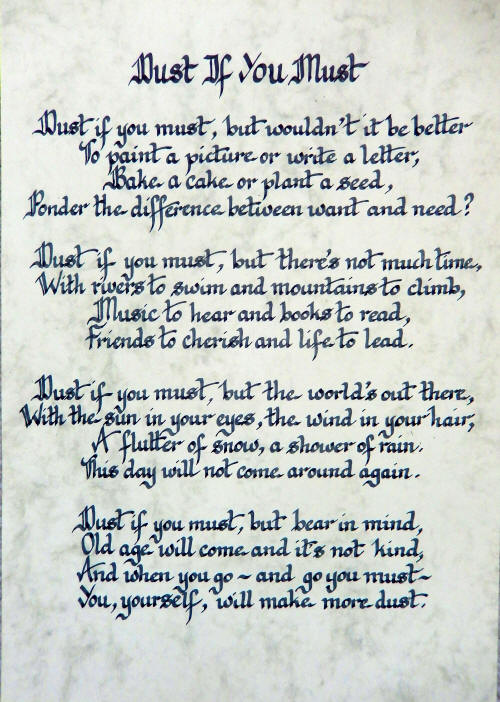 Dust If You Must
Dust if you must, but wouldn't it be better
To paint a picture or write a letter,
Bake a cake or plant a seed,
Ponder the difference between want and need?
Dust if you must, but there's not much time,
With rivers to swim and mountains to climb,
Music to hear and books to read,
Friends to cherish and life to lead.
Dust if you must, but the world's out there,
With the sun in your eyes, the wind in your hair,
A flutter of snow, a shower of rain.
This day will not come around again.
Dust if you must, but bear in mind,
Old age will come and it's not kind,
And when you go ~ and go you must~
You, yourself, will make more dust.